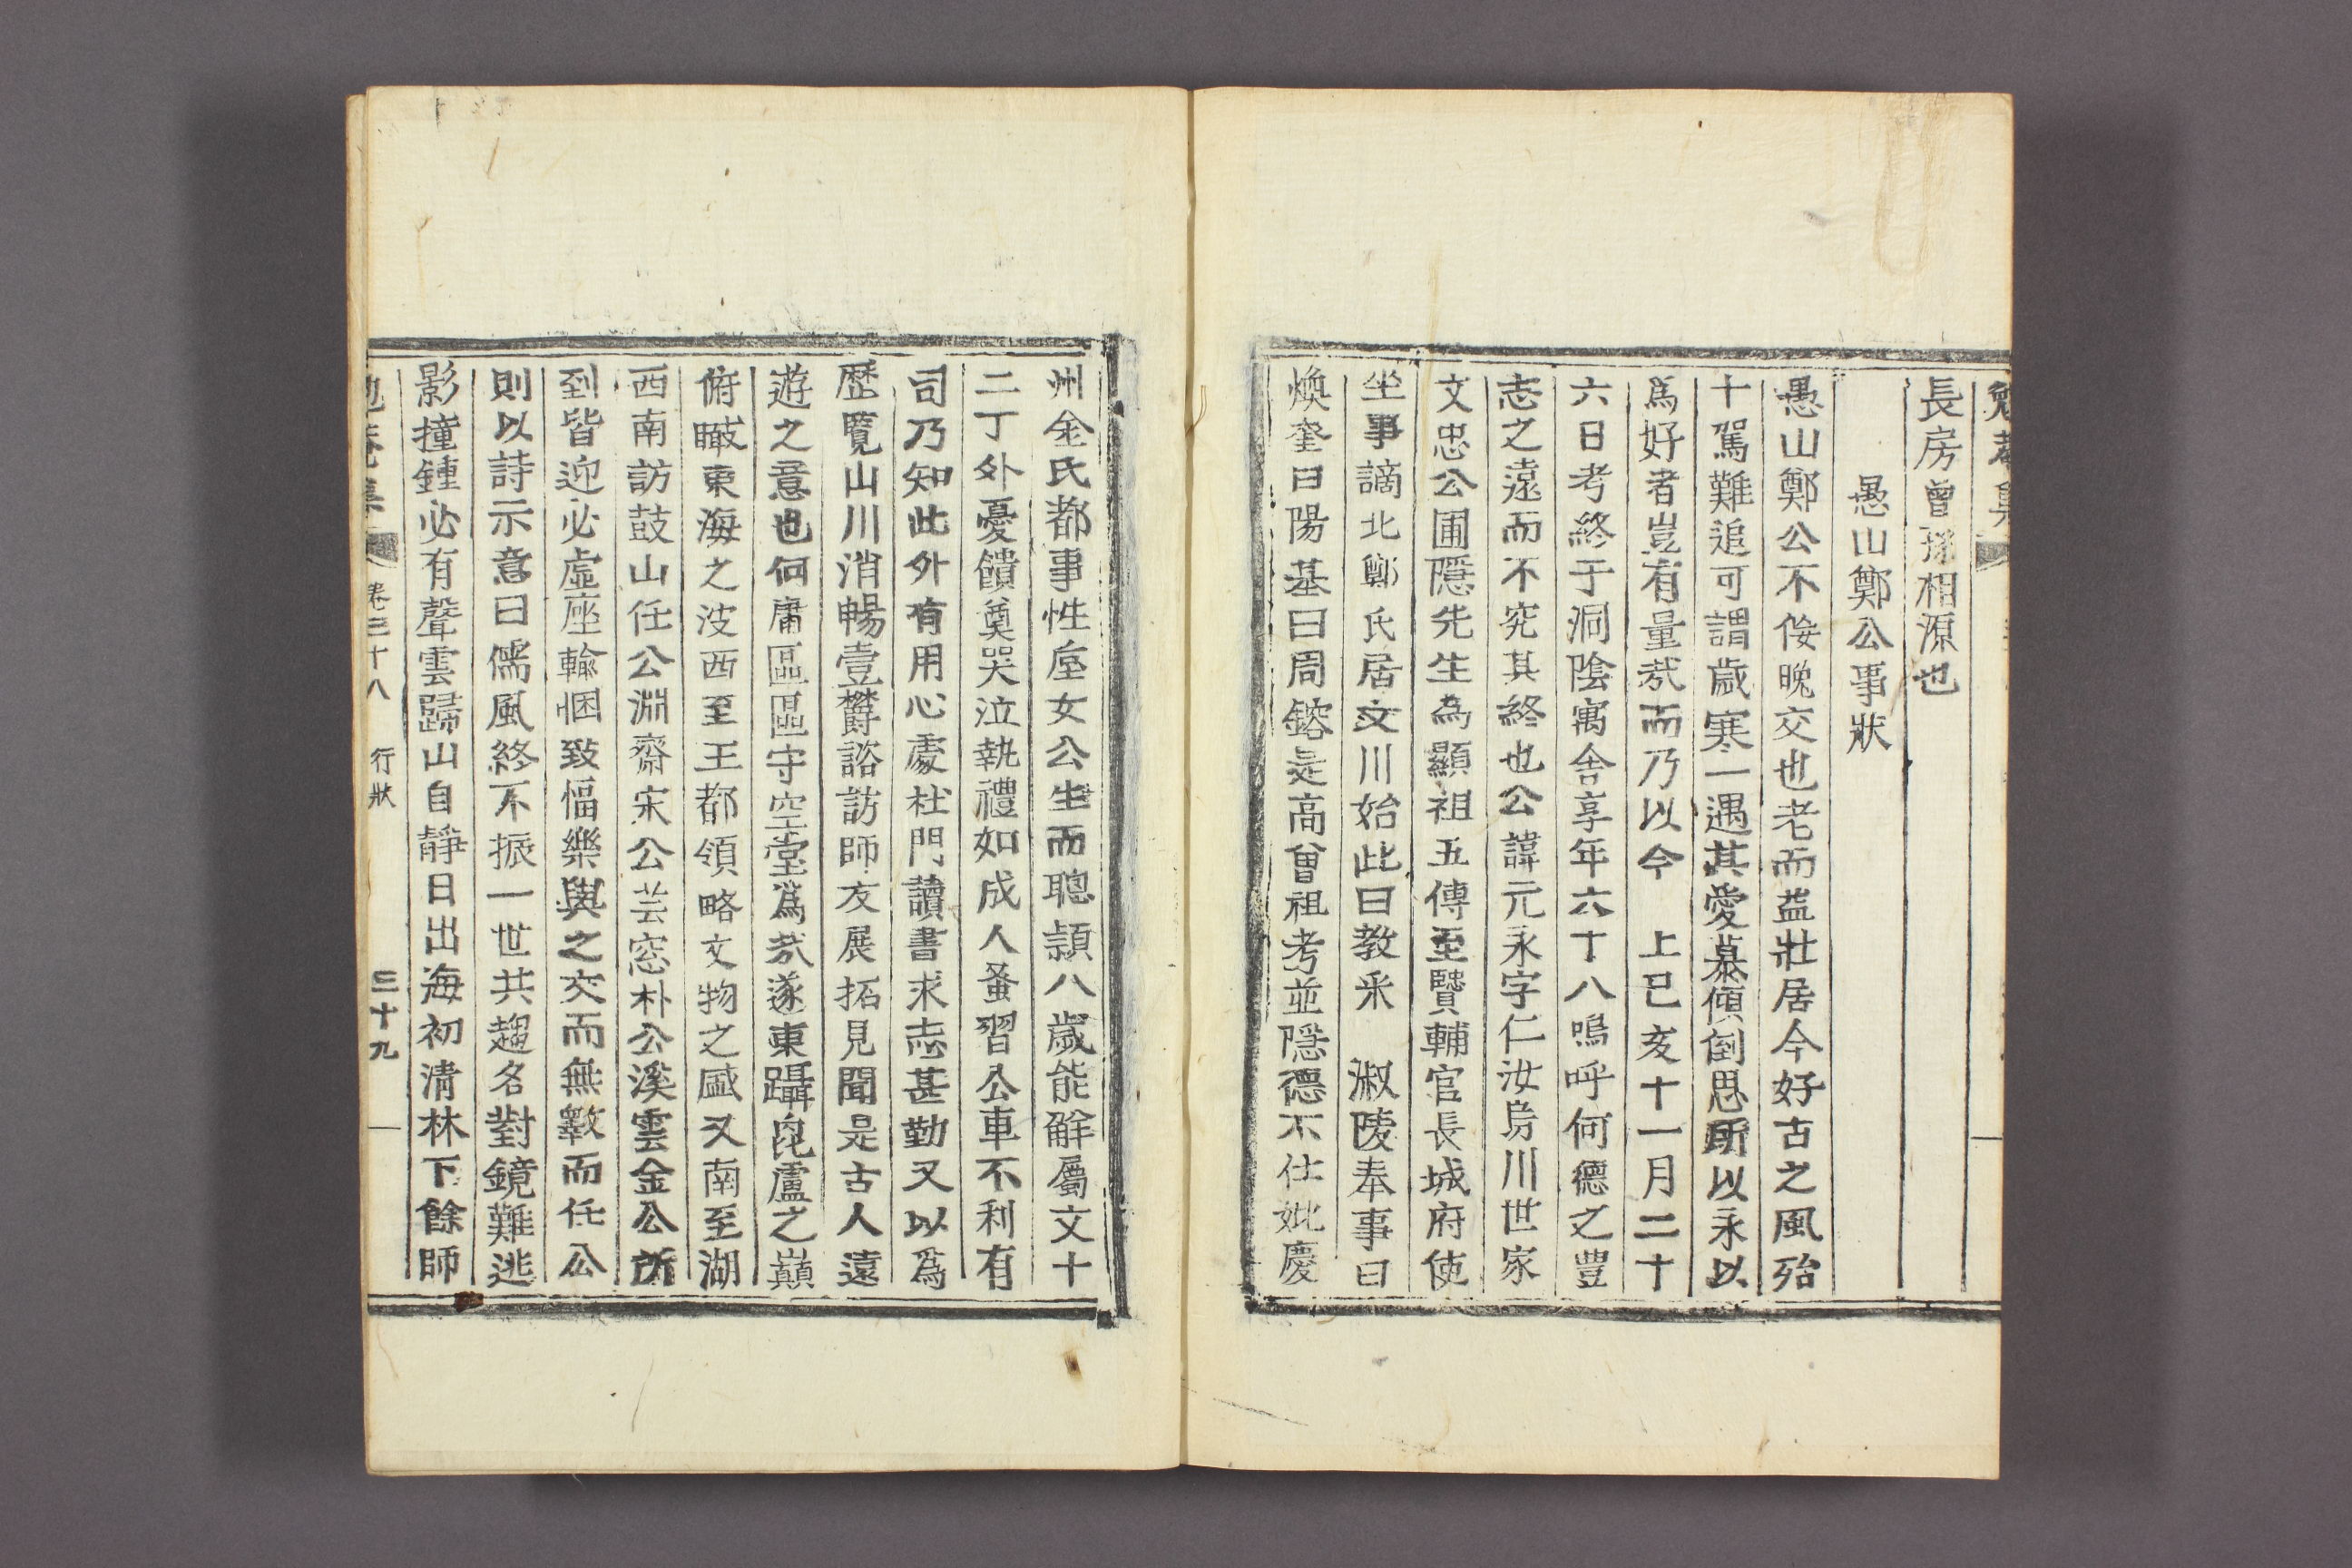 勉菴集
長房曾孫相源也
愚山鄭公事狀
愚山鄭公不侫晚交也老而益壯居今好古之風殆
十駕難追可謂歲寒一遇其愛慕傾倒思所以永以
爲好者豈有量哉而乃以今 上己亥十一月二十
六日考終于洞陰寓舍享年六十八嗚呼何德之豊
志之遠而不究其終也公諱元永字仁汝烏川世家
文忠公圃隱先生為顯祖五傳至贒輔官長城府使
坐事謫北鄭氏居文川始此曰敎釆 淑陵奉事曰
煥奎曰陽基曰周鎔是高曾祖考並隱德不仕妣慶
州金氏都事性垕女公生而聰頴八歲能觧屬文十
二丁外憂饋奠哭泣執禮如成人蚤習公車不利有
司乃知此外有用心處杜門讀書求志甚勤又以爲
歷覽山川消暢壹欝諮訪師友展拓見聞是古人遠
遊之意也何庸區區守空堂爲哉遂東躡毘盧之巔
俯瞰東海之波西至王都領略文物之盛又南至湖
西南訪鼓山任公淵齋宋公芸窓朴公溪雲金公所
到皆迎必虛座輸悃致愊樂與之交而無斁而任公
則以詩示意曰儒風終不振一世共趨名對鏡難逃
影撞鍾必有聲雲歸山自靜日出海初淸林下餘師
勉菴集 卷三十八 行狀 三十九